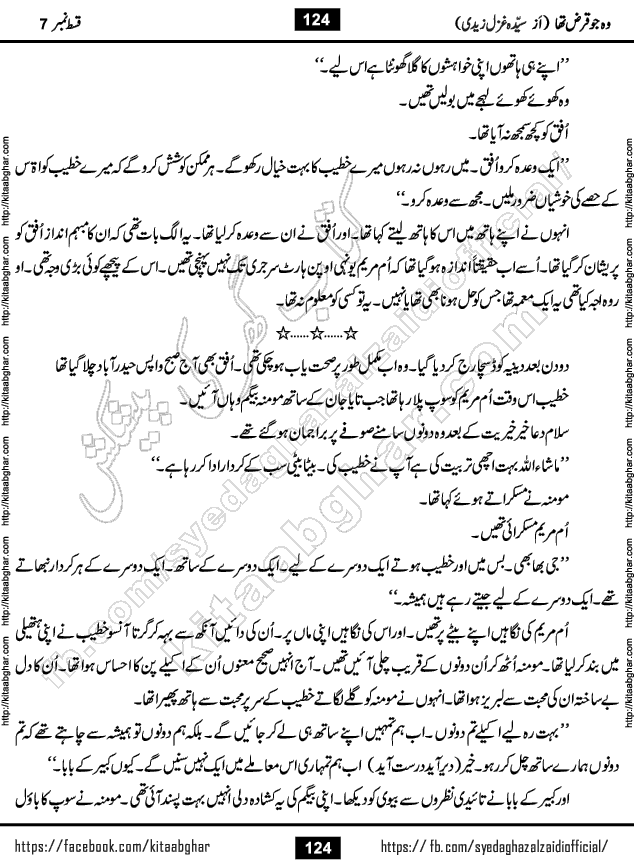 وہ جو قرض تھا (از سیّدہ غزل زیدی)
124
قسط نمبر 7
’’اپنے ہی ہاتھوں اپنی خواہشوں کا گلا گھونٹا ہے اس لیے۔‘‘
وہ کھوئے کھوئے لہجے میں بولیں تھیں۔
اُفق کو کچھ سمجھ نہ آیا تھا۔
’’ایک وعدہ کرو اُفق۔ میں رہوں نہ رہوں میرے خطیب کا بہت خیال رکھو گے۔ ہر ممکن کوشش کرو گے کہ میرے خطیب کو اة س
کے حصے کی خوشیاں ضرور ملیں۔ مجھ سے وعدہ کرو۔‘‘
انہوں نے اپنے ہاتھ میں اس کا ہاتھ لیتے کہا تھا۔ اور اُفق نے ان سے وعدہ کر لیا تھا۔ یہ الگ بات تھی کہ ان کا مبہم انداز اُفق کو
پریشان کر گیا تھا۔ اُسے اب حقیقتاً اندازہ ہو گیا تھا کہ اُم مریم یونہی اوپن ہارٹ سرجری تک نہیں پہنچی تھیں۔ اس کے پیچھے کوئی بڑی وجہ تھی۔ او
ر وہ وجہ کیا تھی یہ ایک معمہ تھا جس کو حل ہونا بھی تھا یا نہیں۔ یہ تو کسی کو معلوم نہ تھا۔
☆......☆......☆
دو دن بعد دینیہ کو ڈسچارج کر دیا گیا۔ وہ اب مکمل طور پر صحت یاب ہو چکی تھی۔ اُفق بھی آج صبح واپس حیدر آباد چلا گیا تھا
خطیب اس وقت اُم مریم کو سوپ پلا رہا تھا جب تایا جان کے ساتھ مومنہ بیگم وہاں آئیں۔
سلام دعا خیر خیریت کے بعد وہ دونوں سامنے صوفے پر براجمان ہو گئے تھے۔
’’ماشاءاللہ بہت اچھی تربیت کی ہے آپ نے خطیب کی۔ بیٹا بیٹی سب کے کردار ادا کر رہا ہے۔‘‘
مومنہ نے مسکراتے ہوئے کہا تھا۔
اُم مریم مسکرائی تھیں۔
’’جی بھابھی۔ بس میں اور خطیب ہوتے ایک دوسرے کے لیے۔ ایک دوسرے کے ساتھ۔ ایک دوسرے کے ہر کردار نبھاتے
تھے۔ ایک دوسرے کے لیے جیتے رہے ہیں ہمیشہ۔‘‘
اُم مریم کی نگاہیں اپنے بیٹے پر تھیں۔ اور اس کی نگاہیں اپنی ماں پر۔ اُن کی دائیں آنکھ سے بہہ کر گرتا آنسو خطیب نے اپنی ہتھیلی
میں بند کر لیا تھا۔ مومنہ اُٹھ کر اُن دونوں کے قریب چلی آئیں تھیں۔ آج انہیں صحیح معنوں اُن کے اکیلے پن کا احساس ہوا تھا۔ اُن کا دل
بے ساختہ ان کی محبت سے لبریز ہوا تھا۔ انہوں نے مومنہ کو گلے لگاتے خطیب کے سر پر محبت سے ہاتھ پھیرا تھا۔
’’بہت رہ لیے اکیلے تم دونوں۔ اب ہم تمہیں اپنے ساتھ ہی لے کر جائیں گے۔ بلکہ ہم دونوں تو ہمیشہ سے چاہتے تھے کہ تم
دونوں ہمارے ساتھ چل کر رہو۔ خیر (دیر آید درست آید) اب ہم تمہاری اس معاملے میں ایک نہیں سنیں گے۔ کیوں کبیر کے بابا۔‘‘
اور کبیر کے بابا نے تائیدی نظروں سے بیوی کو دیکھا۔ اپنی بیگم کی یہ کشادہ دلی انہیں بہت پسند آئی تھی۔ مومنہ نے سوپ کا باؤل
http://kitaabghar.com http://kitaabghar.com http://kitaabghar.com http://kitaabghar.com http://kitaabghar.com http://kitaabghar.com
http://kitaabghar.com http://kitaabghar.com http://kitaabghar.com http://kitaabghar.com http://kitaabghar.com http://kitaabghar.com
کتاب گھر کی پیشکش
fb.com/syedaghazalzaidiofficial/
kitaabghar.com
https://facebook.com/kitaabghar
124
https://fb.com/syedaghazalzaidiofficial/